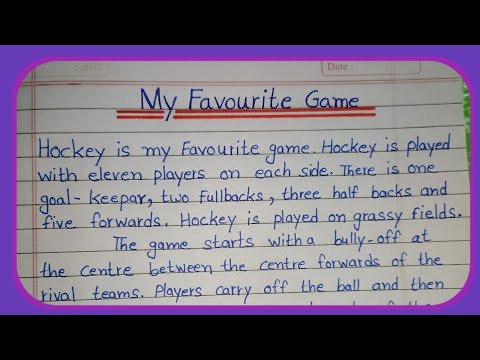 Date :
My Favourite Game
Hockey is my favourite game. Hockey is played
with eleven players on each side. There is one
goal-keepar, two fullbacks, three half backs and
five forwards. Hockey is played on grassy fields.
The game starts with a bully-off at
the centre between the centre forwards of the
rival teams. Players carry off the ball and then